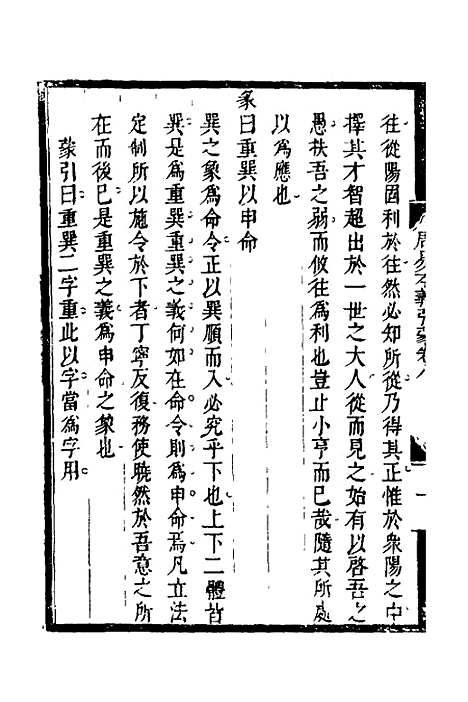 周易本義引蒙卷八
一
往從陽固利於往然必知所從乃得其正惟於衆陽之中
擇其才智超出於一世之大人從而見之始有以啓吾之
愚扶吾之弱而攸往爲利也豈止小亨而已哉隨其所處
以爲應也
彖曰重巽以申命
巽之象爲命令正以巽順而入必究乎下也上下二體皆
巽是爲重巽重巽之義何如在命令則爲申命焉凡立法
定制所以施令於下者丁寧反復務使曉然於吾意之所
在而後已是重巽之義爲申命之象也
蒙引曰重巽二字重此以字當爲字用